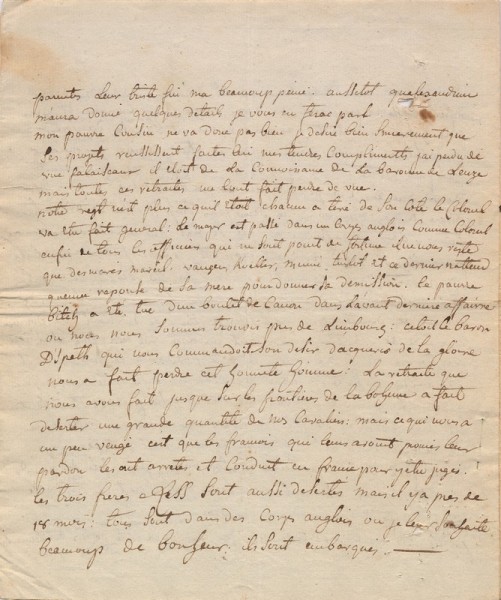 parentes leur triste fin ma beaucoup peiné. aussitot que
maura donné quelques details je vous en ferai part
mon pauvre Cousin ne va donc pas bien je desire bien sincerement que
ses projets reussissent faites lui mes tendres Compliments j'ai perdu de
vue il etoit de La Connoissance de La Baronne de
mais toutes ces retraites me l'ont fait perdre de vue.
notre regt n'est plus ce qu'il etoit chacun a tiré de son coté le Colonel
va etre fait general: Le major est passé dans un Corps anglois Comme Colonel
enfin de tous les officiers qui en sont point de fortune il ne nous reste
que et ce dernier n'attend
qu'une reponse de sa mere pour donner sa demission. le pauvre
a eté tué d'un boulet de Canon dans L'avant derniere affaire
ou nous nous sommes trouvés pres de Limbourg: cetoit le baron
D'Spath qui nous Commandoit son desir d'acquerir de la gloire
nous a fait perdre cet honnete homme! La retraite que
nous avons fait jusque sur les frontieres de la boheme a fait
deserter une grande quantité de nos Cavaliers: mais ce qui nous a
un peu vengé c'est que les francois qui leurs avoient promis leur
pardon les ont arretés et Conduit en france pour y etre jugés.
les trois freres sont aussi desertés mais il y a pres de
18 mois: tous sont dans des Corps anglois ou je leur souhaite
beaucoup de bonheur. ils sont embarqués.